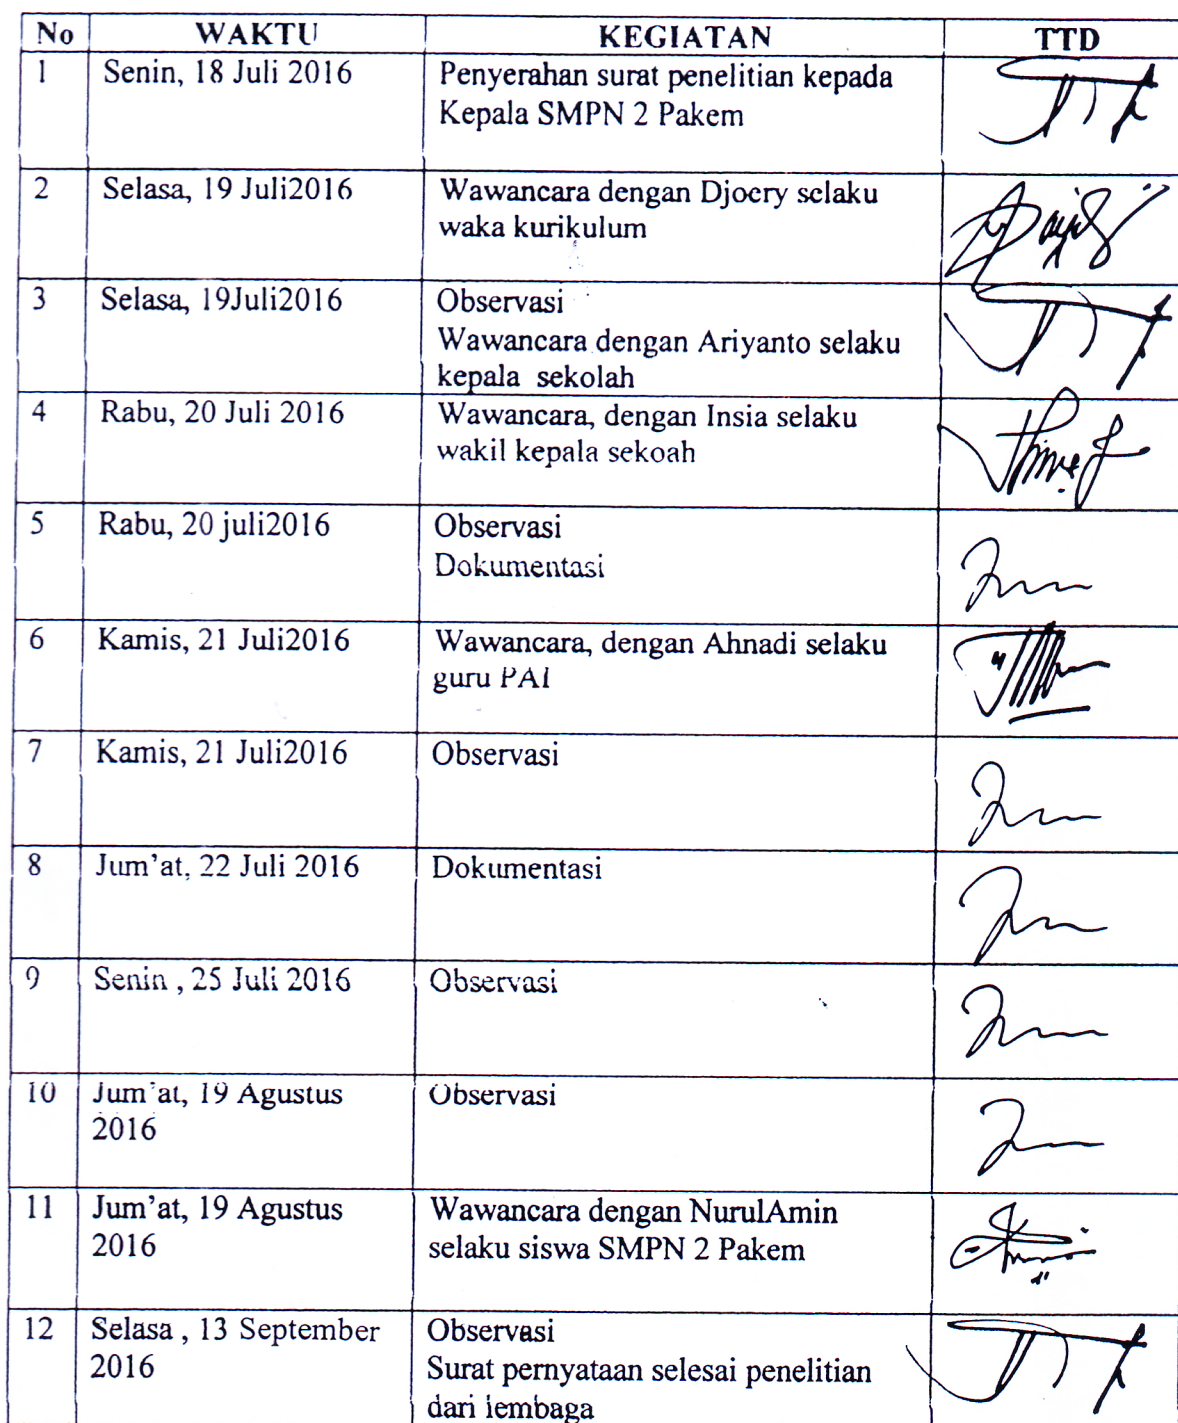 No WAKTU KEGIATAN TTD
1 Senin, 18 Juli 2016 Penyerahan surat penelitian kepada
Kepala SMPN 2 Pakem
2 Selasa, 19 Juli2016 Wawancara dengan Djoery selaku
waka kurikulum
3 Selasa, 19Juli2016 Observasi
Wawancara dengan Ariyanto selaku
kepala sekolah
4 Rabu, 20 Juli 2016 Wawancara, dengan Insia selaku
wakil kepala sekoah
5 Rabu, 20 juli2016 Observasi
Dokumentasi
6 Kamis, 21 Juli2016 Wawancara, dengan Ahnadi selaku
guru PAI
7 Kamis, 21 Juli2016 Observasi
8 Jum'at, 22 Juli 2016 Dokumentasi
9 Senin , 25 Juli 2016 Observasi
10 Jum'at, 19 Agustus Observasi
2016
11 Jum'at, 19 Agustus Wawancara dengan NurulAmin
2016 selaku siswa SMPN 2 Pakem
12 Selasa , 13 September Observasi
2016 Surat pernyataan selesai penelitian
dari lembaga